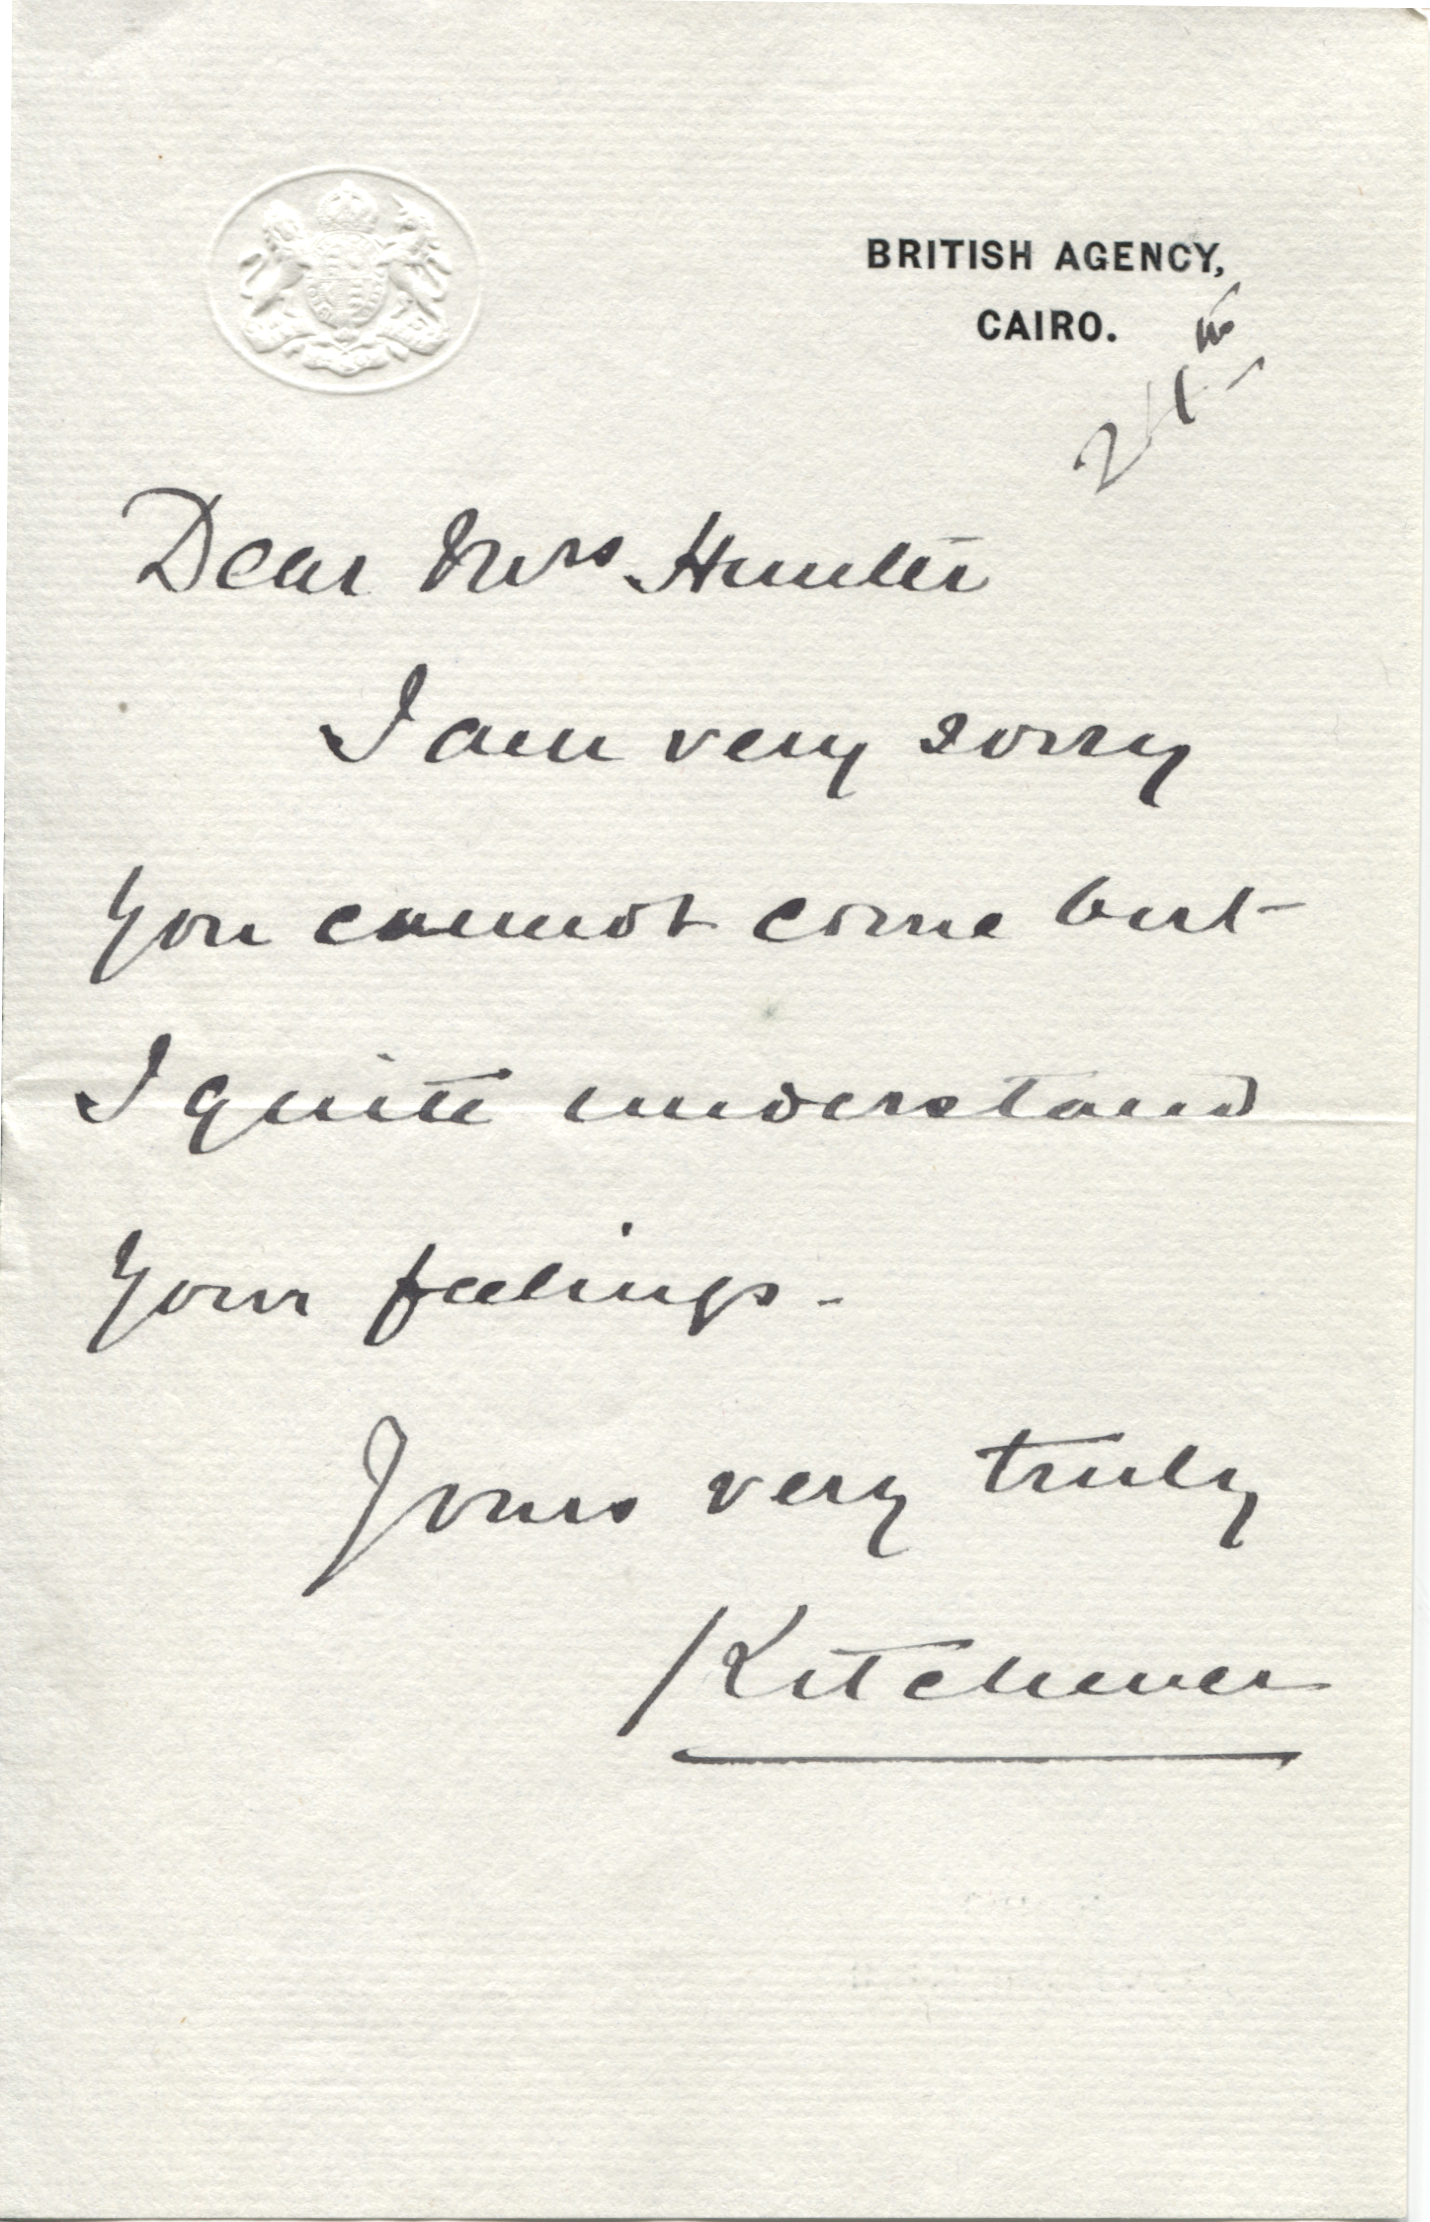 BRITISH AGENCY,
CAIRO.
24th
Dear Mrs Hunter
I am very sorry
you cannot come but
I quite understand
your feelings -
Yours very truly
Kitchener